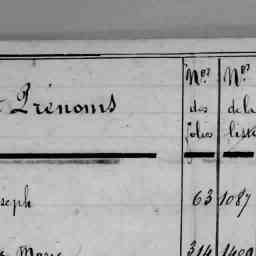 Prénoms
Nos des folios
Nos de la liste
seph 63 1087
Marie 314